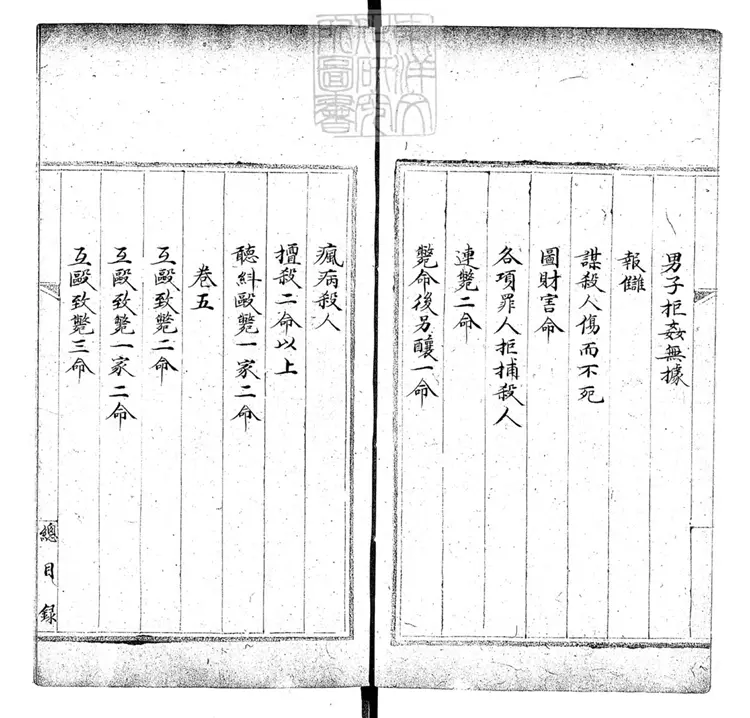 男子拒姦無據
報讎
謀殺人傷而不死
圖財害命
各項罪人拒捕殺人
連斃二命
斃命後另釀一命
瘋病殺人
擅殺二命以上
聽糾毆斃一家二命
卷五
互毆致斃二命
互毆致斃一家二命
互毆致斃三命
總目錄